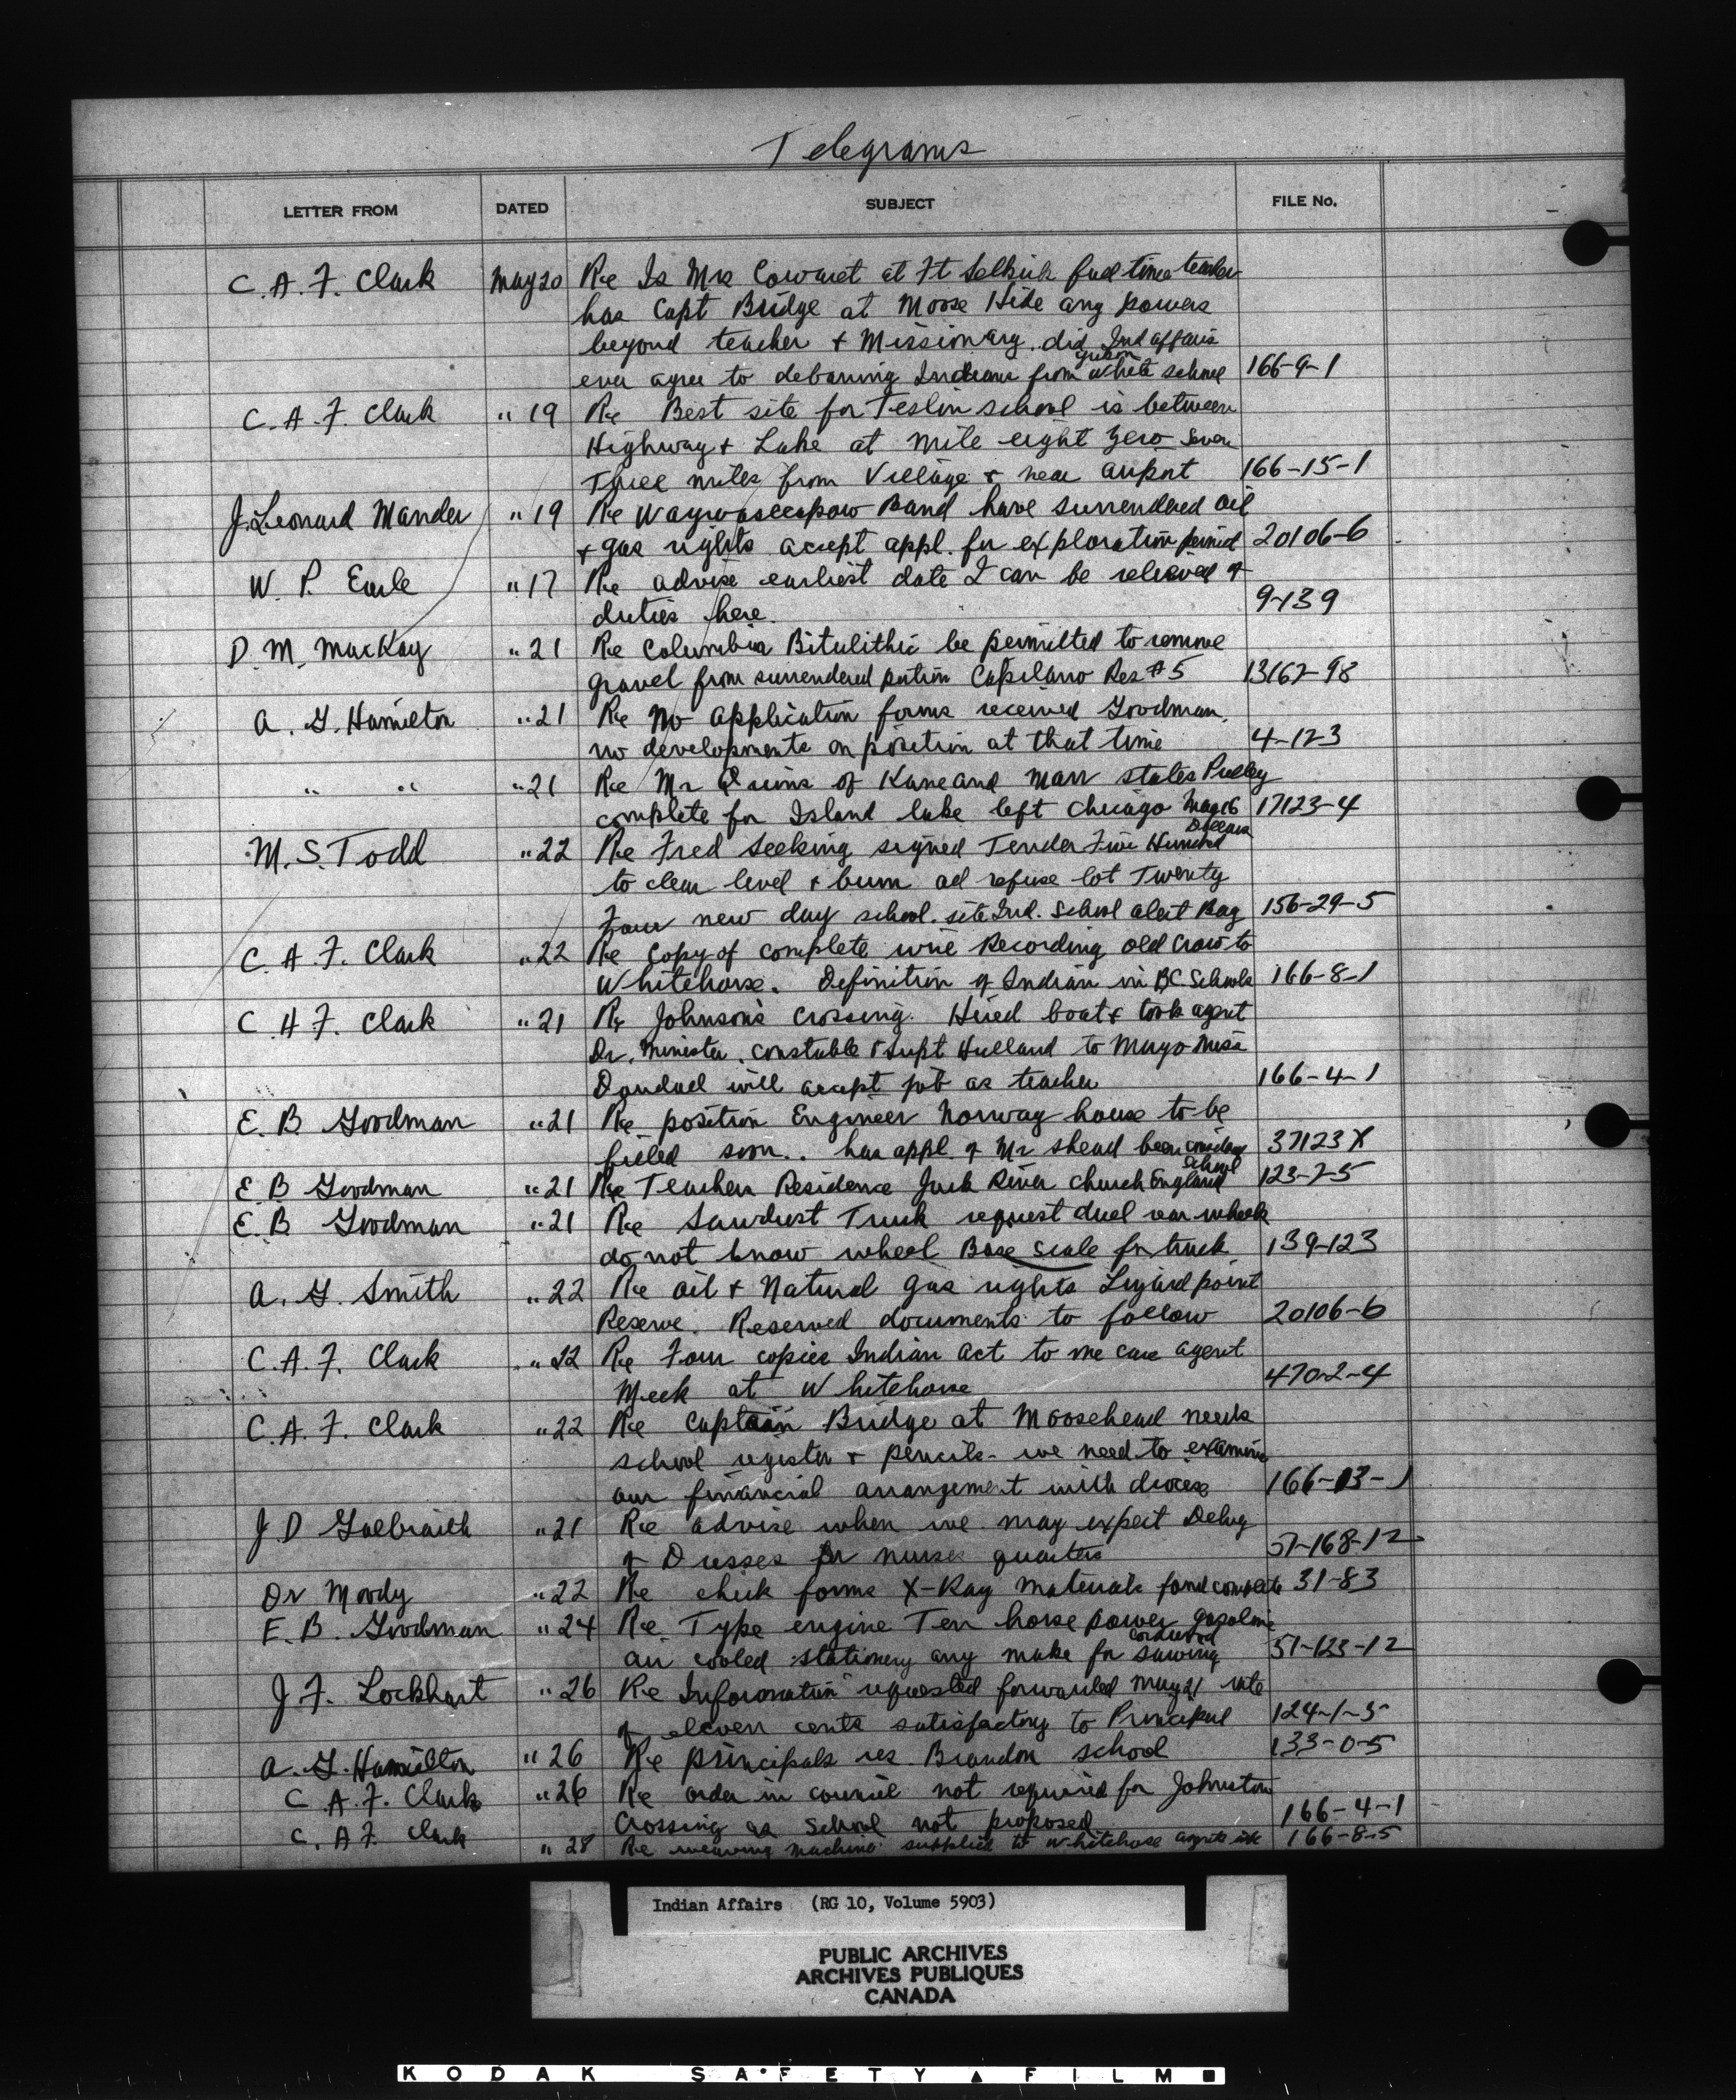 Telegrams
LETTER FROM DATED SUBJECT FILE No.
C. A. F. Clark May 20 Re Is Mrs Cowaret at Ft Selkirk full time teacher
has Capt Bridge at Moose Hide any powers
beyond teacher + Missionary. did Ind affairs
ever agree to debarring Indians from white school 166-9-1
C. A. F. Clark " 19 Re Best site for Teslin school is between
Highway + Lake at mile eight zero seven
Three miles from Village + near airport 166-15-1
J. Leonard Mander " 19 Re Waywaseecapow Band have surrendered oil
+ gas rights accept appl. for exploration permit 20106-6
W. P. Earle " 17 Re advise earliest date I can be relieved of
duties here. 9-139
D. M. MacKay " 21 Re Columbia Bitulithic be permitted to remove
gravel from surrendered portion Capilano Res #5 13167-98
A. G. Hamilton " 21 Re No application forms received Goodman.
no developments on position at that time 4-123
" " " 21 Re Mr Quins of Kane and Marr states Pulley
complete for Island lake left Chicago May 16 17123-4
M. S. Todd " 22 Re Fred seeking signed Tender Five Hundred
Dollars
to clear level + burn all refuse lot Twenty
Four new day school site Ind. School alert Bay 156-29-5
C. A. F. Clark " 22 Re Copy of complete wire Recording old Crow to
Whitehorse. Definition of Indian in BC Schools 166-8-1
C. H. F. Clark " 21 Re Johnson's Crossing. Hired boat + took agent
Dr. Minister, constable + Supt Hulland to Mayo Miss
will accept job as teacher 166-4-1
E. B. Goodman " 21 Re position Engineer Norway house to be
filled soon.. has appl. of Mr shead been 37123X
E B Goodman " 21 Re Teachers Residence Jack River Church England
School 123-7-5
E. B Goodman " 21 Re Sawdust Truck request duel rear wheels
do not know wheel Base scale for truck 139-123
A. G. Smith " 22 Re oil + Natural gas rights Lizard point
Reserve. Reserved documents to follow 20106-6
C. A. F. Clark " 22 Re Four copies Indian Act to me care agent
Meek at Whitehorse 470-2-4
C. A. F. Clark " 22 Re Captain Bridge at Moosehead needs
school register + pencils - we need to examine
our financial arrangement with diocese 166-13-1
J D Galbraith " 21 Re advise when we may expect Delvy
of Dresses for nurses quarters 57-168-12
Dr Moody " 22 Re check forms X-Ray materials found complete 31-83
E. B. Goodman " 24 Re Type engine Ten horse power gasoline
air cooled stationery any make for cordwood sawing 51-123-12
J F. Lockhart " 26 Re Information requested forwarded May 21 rate
of eleven cents satisfactory to Principal 124-1-5
A. G. Hamilton " 26 Re principals res Brandon school 133-0-5
C. A. F. Clark " 26 Re order in council not required for Johnston
Crossing as School not proposed 166-4-1
C. A F. Clark " 28 Re weaving machine supplied to Whitehorse 166-8-5
Indian Affairs (RG 10, Volume 5903)
PUBLIC ARCHIVES
ARCHIVES PUBLIQUES
CANADA
KODAK SAFETY FILM